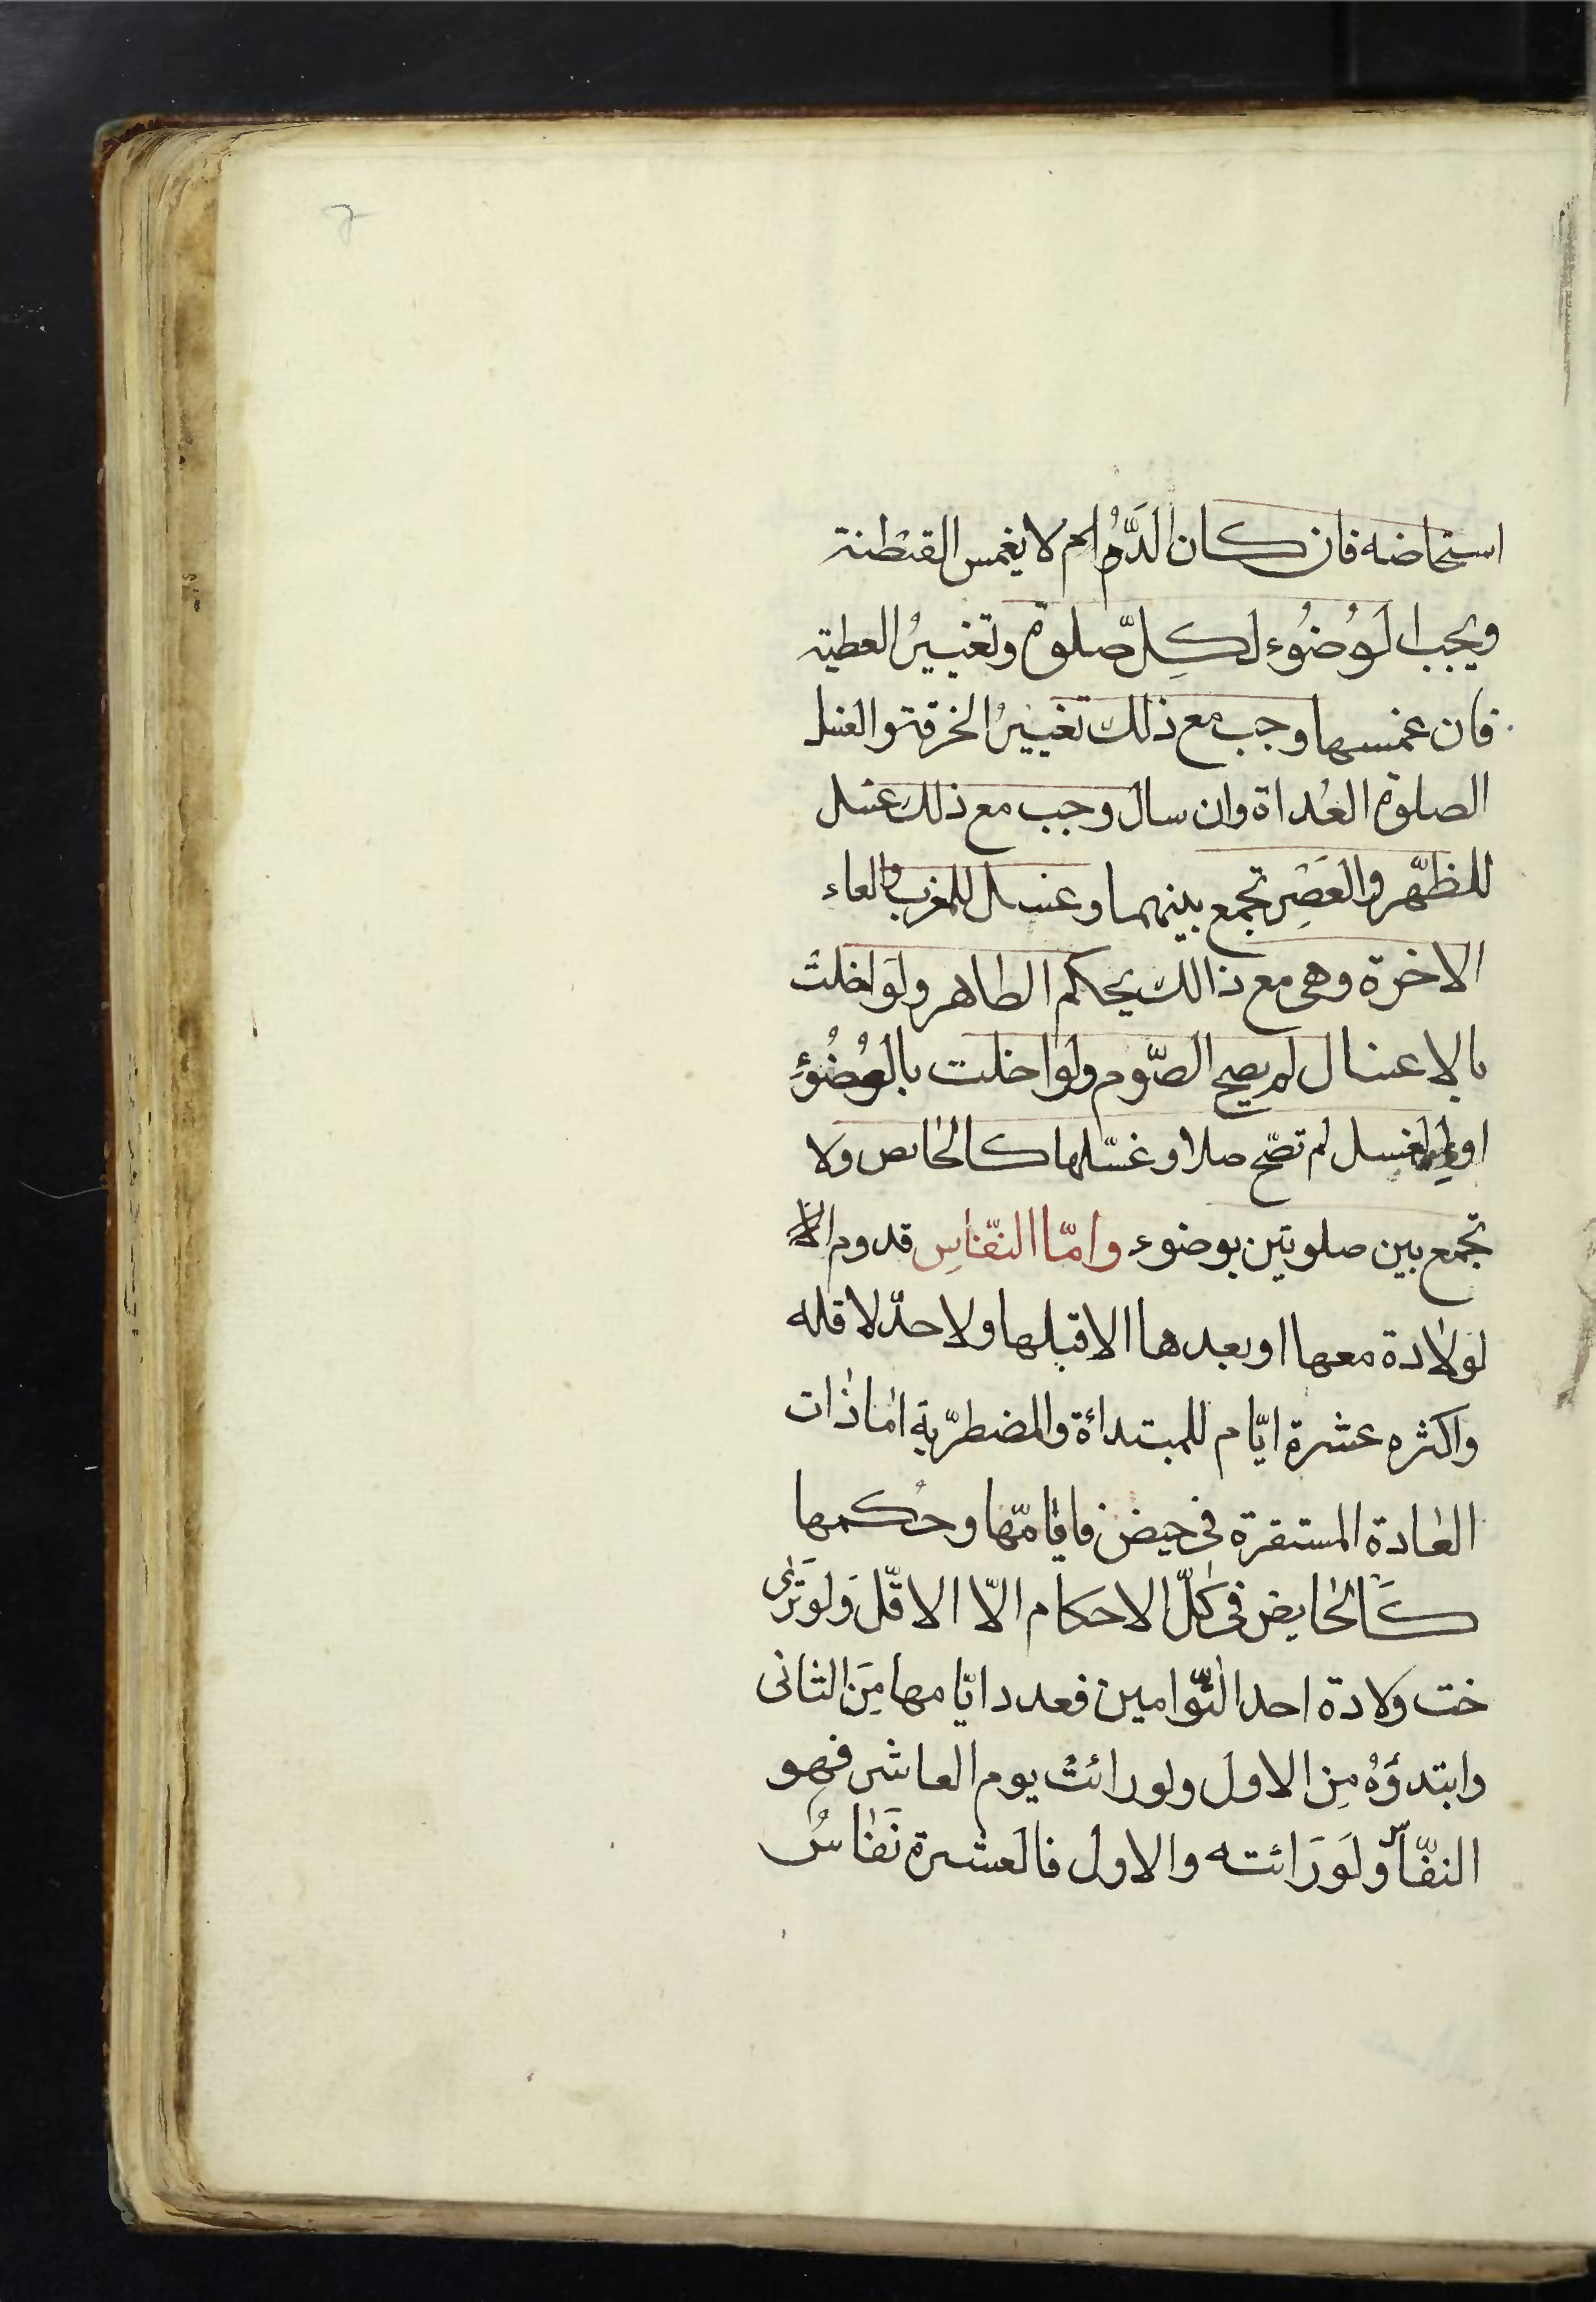 استحاضه فان كان الَدَّمُ لم لا يغمس القنطنة
ويجب الوُضُوء لكِل صّلوة وتغييرُ العطية
فان عمسها وجب مع ذلك تغييرُ الخرقة والغسل
الصلوة الغُداة وان سال وجب مع ذلك غسل
للظّهر والعَصِر تجمع بينهما وغسل للمغرب والعاء
الاخرة وهى مع ذالك يحكم الطاهر ولَو اخلت
بالاعنسال لم يصح الصّوم ولوا خلت بالوُضُوءِ
او الغسل لم تصّح صلا وغسّلها كالحٰايص ولا
تجمع بين صلوتين بوضوء وامّا النفّٰاسِ قدوم الا
لولٰادة معها او بعدها الا قبلها ولا حدّ لا قله
واكثره عشرة ايّام للمبتدأة والمضطرّبة امٰا ذٰات
العٰادة المستقرة فى حيض فايٰامّها وحُكمها
كَالحٰايض فى كلّ الاحكام الّا الاقّل وَلو تَرٰى
خت ولادة احد التّوامين فعدد ايّامها مِنَ الثانى
وابتدؤهُ مِن الاول ولو رائتْ يوم العاشر فهو
النفّاس ولَو رَائته والاول فالعشرة نَفٰاسُ